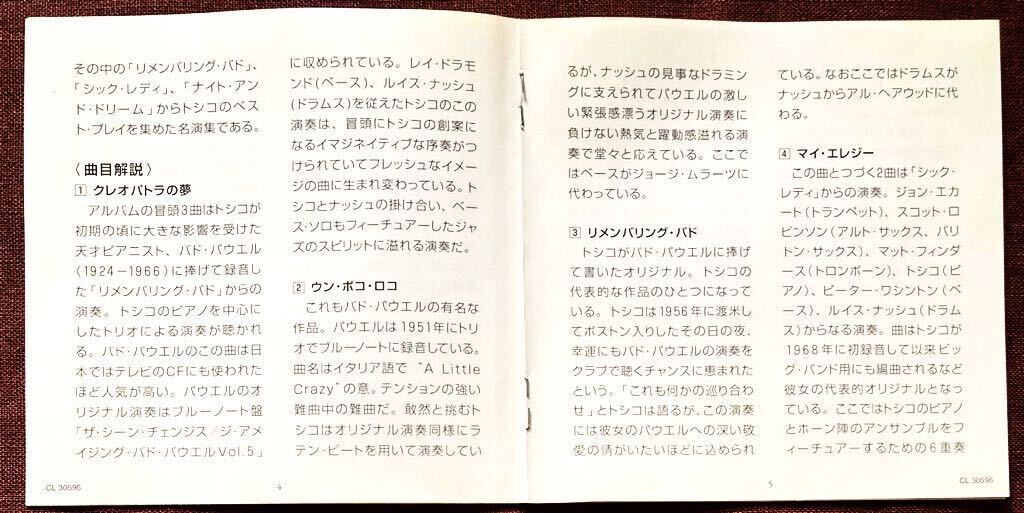 その中の「リメンバリング・バド」、
「シック・レディ」、「ナイト・アン
ド・ドリーム」からトシコのベス
ト・プレイを集めた名演集である。
〈曲目解説〉
1 クレオパトラの夢
アルバムの冒頭3曲はトシコが
初期の頃に大きな影響を受けた
天才ピアニスト、バド・パウエル
(1924－1966)に捧げて録音し
た「リメンバリング・バド」からの
演奏。トシコのピアノを中心に
したトリオによる演奏が聴かれ
る。バド・パウエルのこの曲は日
本ではテレビのCFにも使われた
ほど人気が高い。パウエルのオ
リジナル演奏はブルーノート盤
「ザ・シーン・チェンジス/ジ・アメ
イジング・バド・パウエルVol.5」
に収められている。レイ・ドラモ
ンド(ベース)、ルイス・ナッシュ
(ドラムス)を従えたトシコのこの
演奏は、冒頭にトシコの創案に
なるイマジネイティブな序奏がつ
けられていてフレッシュなイメー
ジの曲に生まれ変わっている。ト
シコとナッシュの掛け合い、ベー
ス・ソロもフィーチュアーしたジャ
ズのスピリットに溢れる演奏だ。
2 ウン・ポコ・ロコ
これもバド・パウエルの有名な
作品。パウエルは1951年にトリ
オでブルーノートに録音している。
曲名はイタリア語で "A Little
Crazy"の意。テンションの強い
難曲中の難曲だ。敢然と挑むト
シコはオリジナル演奏同様にラ
テン・ビートを用いて演奏してい
CL 30596
4
るが、ナッシュの見事なドラミン
グに支えられてパウエルの激し
い緊張感漂うオリジナル演奏に
負けない熱気と躍動感溢れる演
奏で堂々と応えている。ここで
はベースがジョージ・ムラーツに
代わっている。
3 リメンバリング・バド
トシコがバド・パウエルに捧げ
て書いたオリジナル。トシコの
代表的な作品のひとつになって
いる。トシコは1956年に渡米し
てボストン入りしたその日の夜、
幸運にもバド・パウエルの演奏を
クラブで聴くチャンスに恵まれた
という。「これも何かの巡り合わ
せ」とトシコは語るが、この演奏
には彼女のパウエルへの深い敬
愛の情がいたいほどに込められ
ている。なおここではドラムスが
ナッシュからアル・ヘアウッドに代
わる。
4 マイ・エレジー
この曲とつづく2曲は「シック・
レディ」からの演奏。ジョン・エカ
ート(トランペット)、スコット・ロ
ビンソン(アルト・サックス、バリ
トン・サックス)、マット・フィンダ
ース(トロンボーン)、トシコ(ピ
アノ)、ピーター・ワシントン(ベ
ース)、ルイス・ナッシュ(ドラム
ス)からなる演奏。曲はトシコが
1968年に初録音して以来ビッ
グ・バンド用にも編曲されるなど
彼女の代表的オリジナルとなっ
ている。ここではトシコのピアノ
とホーン陣のアンサンブルをフ
ィーチュアーするための6重奏
5
CL 30596